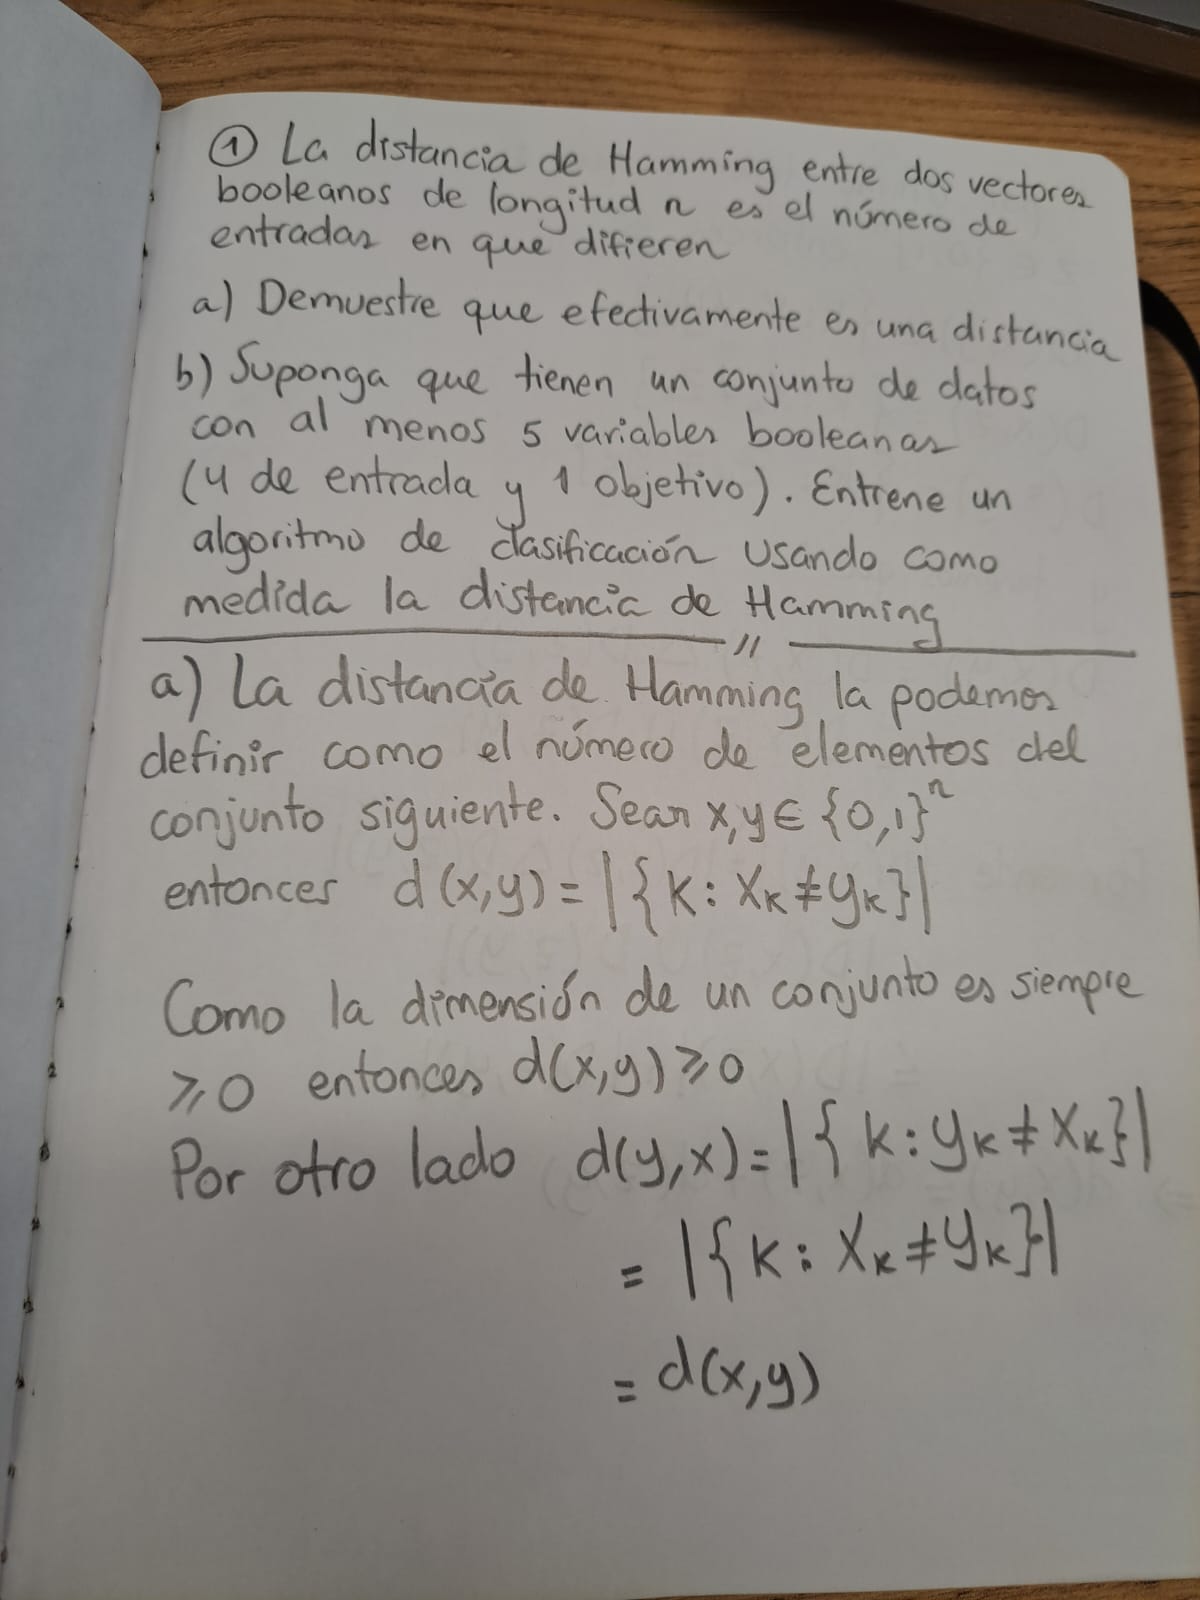 ① La distancia de Hamming entre dos vectores
booleanos de longitud n es el número de
entradas en que difieren
a) Demuestre que efectivamente es una distancia
b) Suponga que tienen un conjunto de datos
con al menos 5 variables booleanas
(4 de entrada y 1 objetivo). Entrene un
algoritmo de clasificación usando como
medida la distancia de Hamming
//
a) La distancia de Hamming la podemos
definir como el número de elementos del
conjunto siguiente. Sean x,y ∈ {0,1}ⁿ
entonces d(x,y) = |{k: xₖ ≠ yₖ}|
Como la dimensión de un conjunto es siempre
⩾0 entonces d(x,y)⩾0
Por otro lado d(y,x) = |{k: yₖ ≠ xₖ}|
= |{k: xₖ ≠ yₖ}|
= d(x,y)